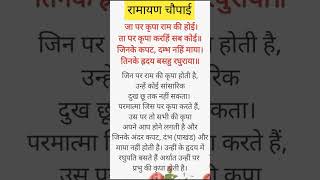 रामायण चौपाई
जा पर कृपा राम की होई।
ता पर कृपा करहिं सब कोई॥
जिनके कपट, दम्भ नहिं माया।
तिनके हृदय बसहु रघुराया॥
जिन पर राम की कृपा होती है,
उन्हें कोई सांसारिक
दुख छू तक नहीं सकता।
परमात्मा जिस पर कृपा करते हैं,
उस पर तो सभी की कृपा
अपने आप होने लगती है और
जिनके अंदर कपट, दंभ (पाखंड) और
माया नहीं होती है। उन्हीं के हृदय में
रघुपति बसते हैं अर्थात उन्हीं पर
प्रभु की कृपा होती है।